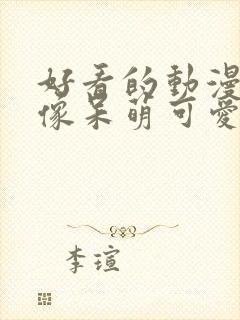 好看的動漫
像呆萌可愛
李瑄